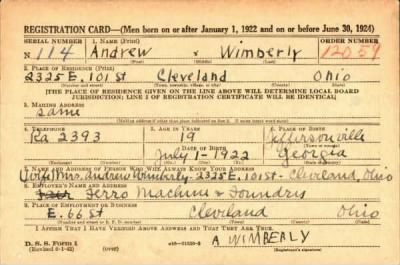 REGISTRATION CARD—(Men born on or after January 1, 1922 and on or before June 30, 1924)
SERIAL NUMBER 1. NAME (Print) ORDER NUMBER
N 114 Andrew v Wimberly 12059
2. PLACE OF RESIDENCE (Print)
2325 E. 101 St Cleveland Ohio
(Number and street) (Town, township, village, or city) (County) (State)
[THE PLACE OF RESIDENCE GIVEN ON THE LINE ABOVE WILL DETERMINE LOCAL BOARD
JURISDICTION; LINE 2 OF REGISTRATION CERTIFICATE WILL BE IDENTICAL]
3. MAILING ADDRESS
same
(Mailing address if other than place indicated on line 2. If same, insert word same)
4. TELEPHONE 5. AGE IN YEARS 6. PLACE OF BIRTH
Ra 2393 19 Jeffersonville
DATE OF BIRTH
July 1-1922 Georgia
7. NAME AND ADDRESS OF PERSON WHO WILL ALWAYS KNOW YOUR ADDRESS
(wife) Mrs. Andrew Wimberly-2325 E. 101 St-Cleveland, Ohio
8. EMPLOYER'S NAME AND ADDRESS
Ferro Machine & Foundris
9. PLACE OF EMPLOYMENT OR BUSINESS
E. 66 St Cleveland Ohio
(Number and street or R. F. D. number) (Town) (County) (State)
I AFFIRM THAT I HAVE VERIFIED ABOVE ANSWERS AND THAT THEY ARE TRUE.
D. S. S. Form 1 A WIMBERLY
(over) (Registrant's signature)